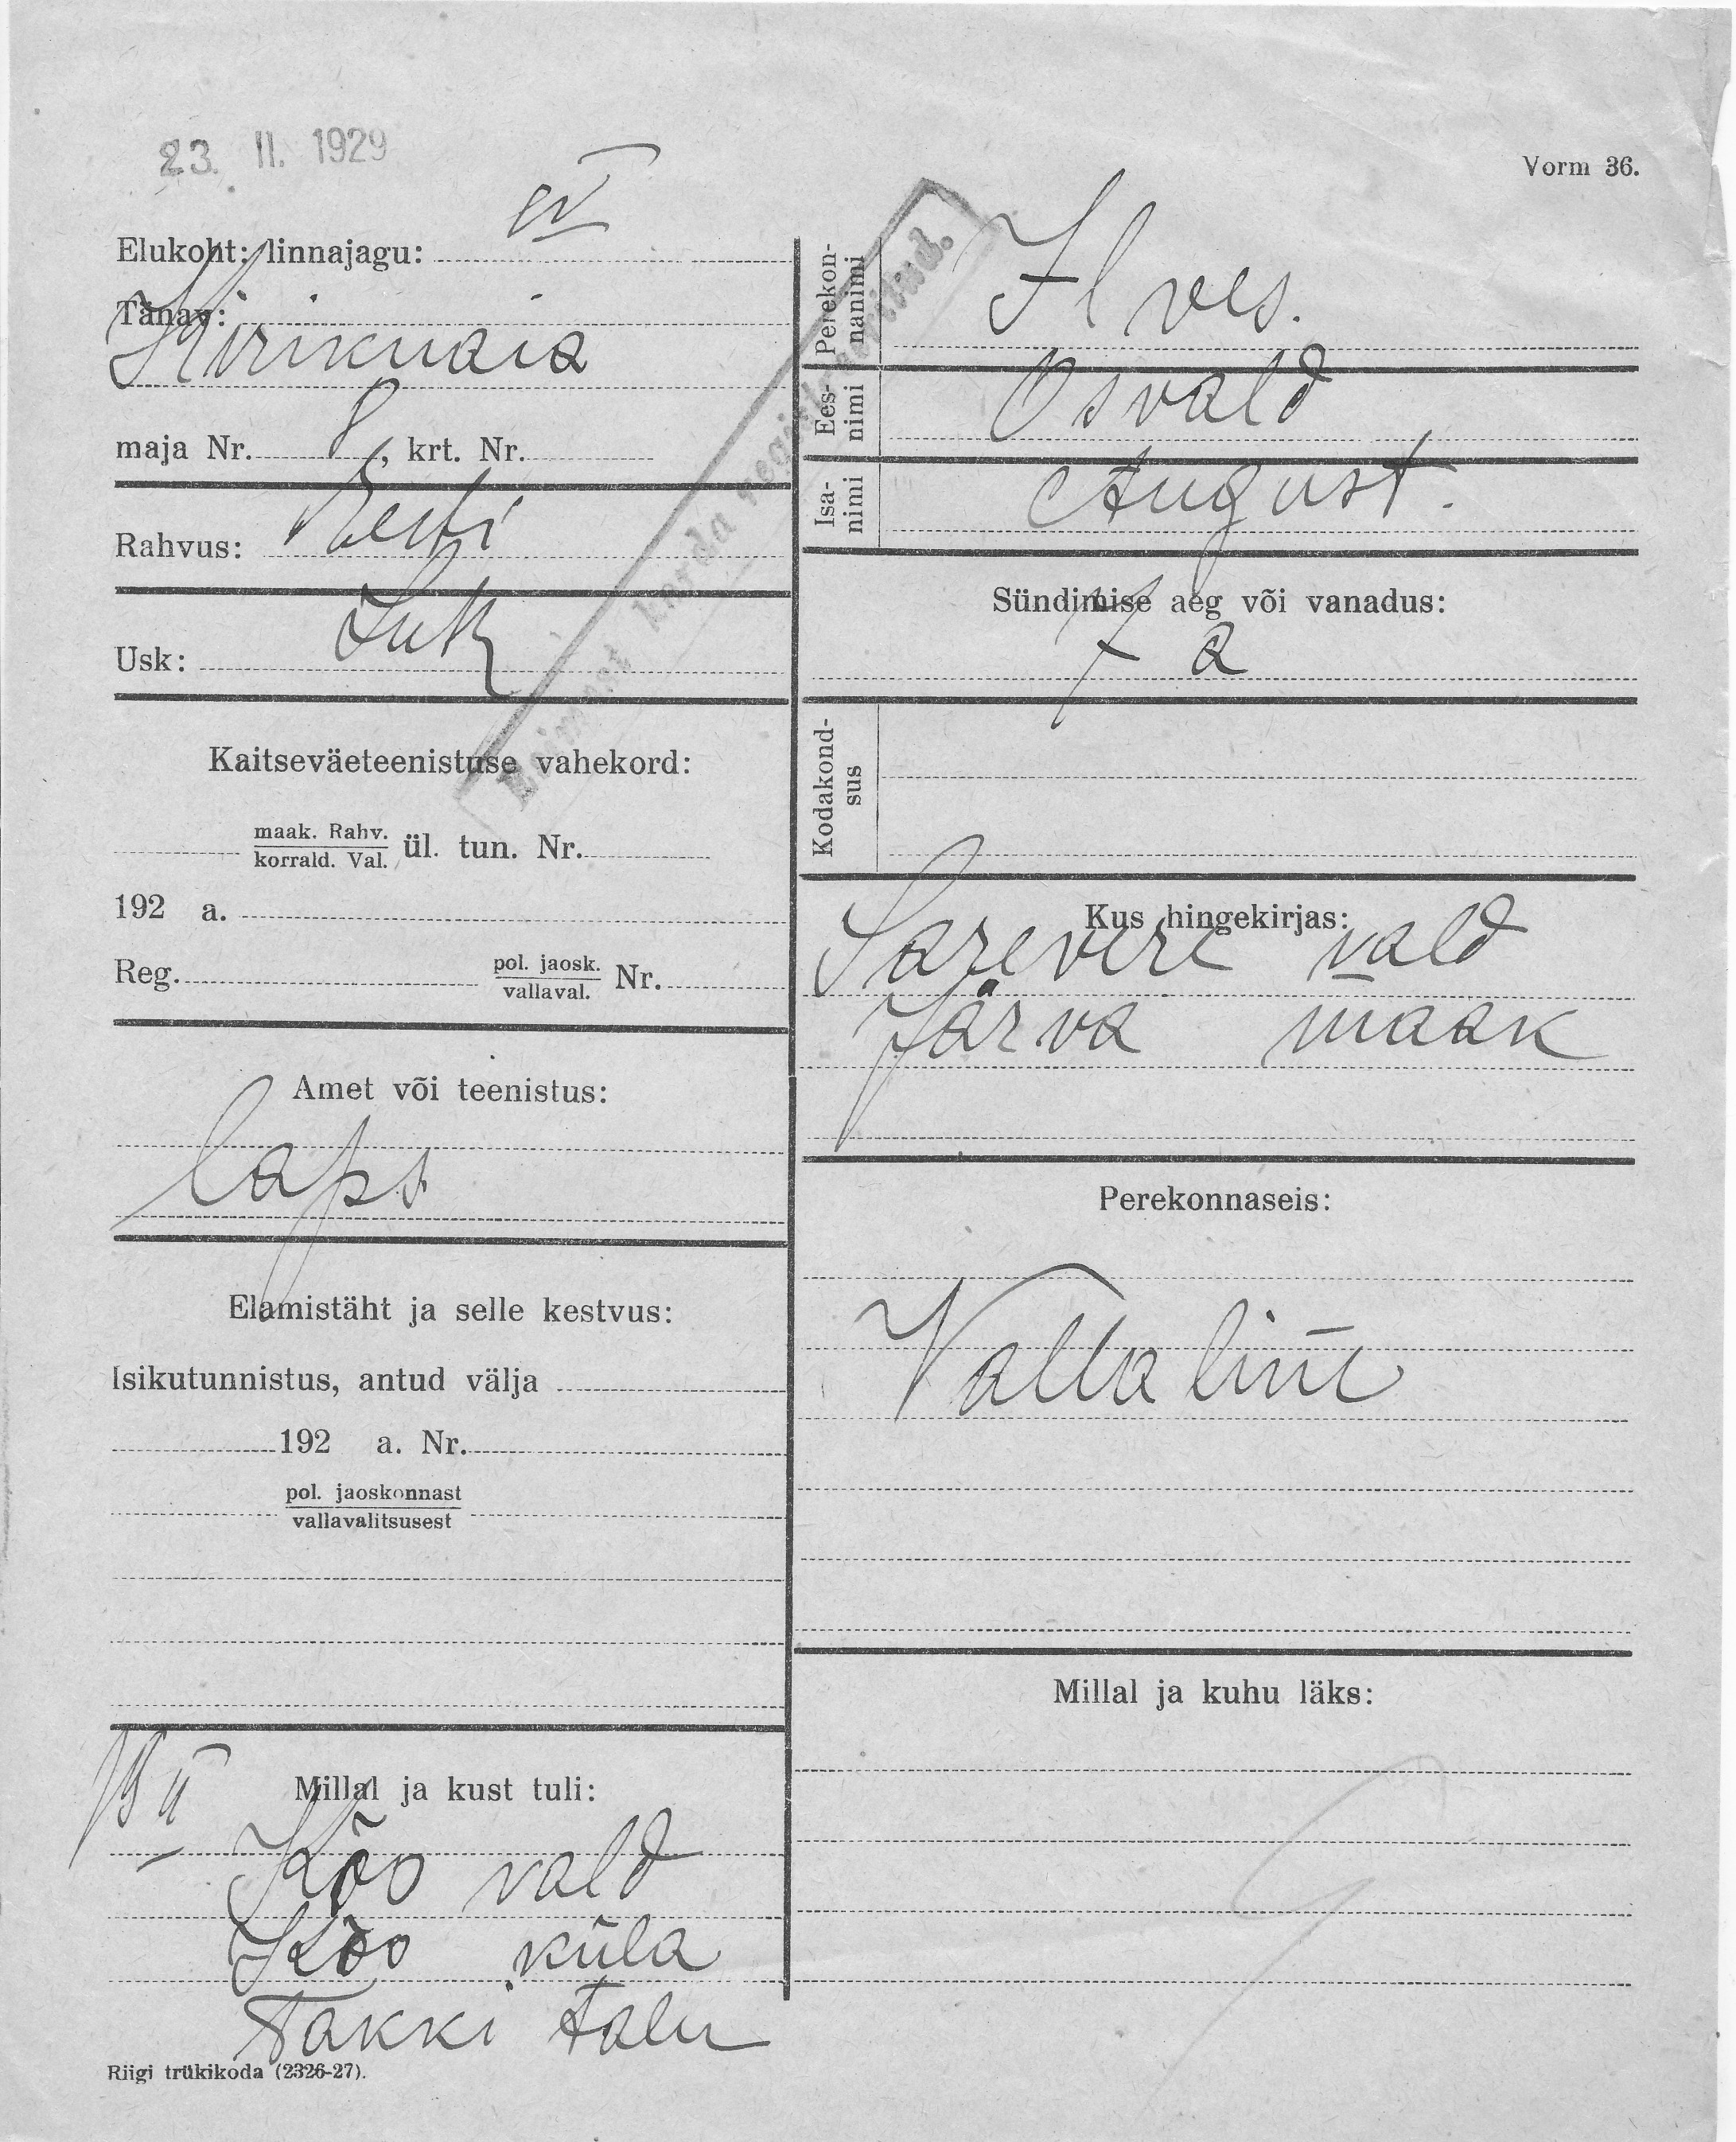 23. II. 1929
Vorm 36.
IV
Elukoht: linnajagu:
Tänav:
Kirikuaia
maja Nr. 8, krt. Nr.
Rahvus: Eesti
Usk: Lut
Kaitseväeteenistuse vahekord:
maak. Rahv.
korrald. Val. ül. tun. Nr.
192 a.
Reg. pol. jaosk.
vallaval. Nr.
Amet või teenistus:
laps
Elamistäht ja selle kestvus:
Isikutunnistus, antud välja
192 a. Nr.
pol. jaoskonnast
vallavalitsusest
II
Millal ja kust tuli:
Kõo vald
Kõo küla
Takki talu
Riigi trükikoda (2326-27).
Esimest korda registreeritud.
Perekon-
nanimi
Ilves.
Ees-
nimi
Osvald
Isa-
nimi
August.
Sündimise aeg või vanadus:
7 a
Kodakond-
sus
Kus hingekirjas:
Särevere vald
Järva maak
Perekonnaseis:
Vallaline
Millal ja kuhu läks: